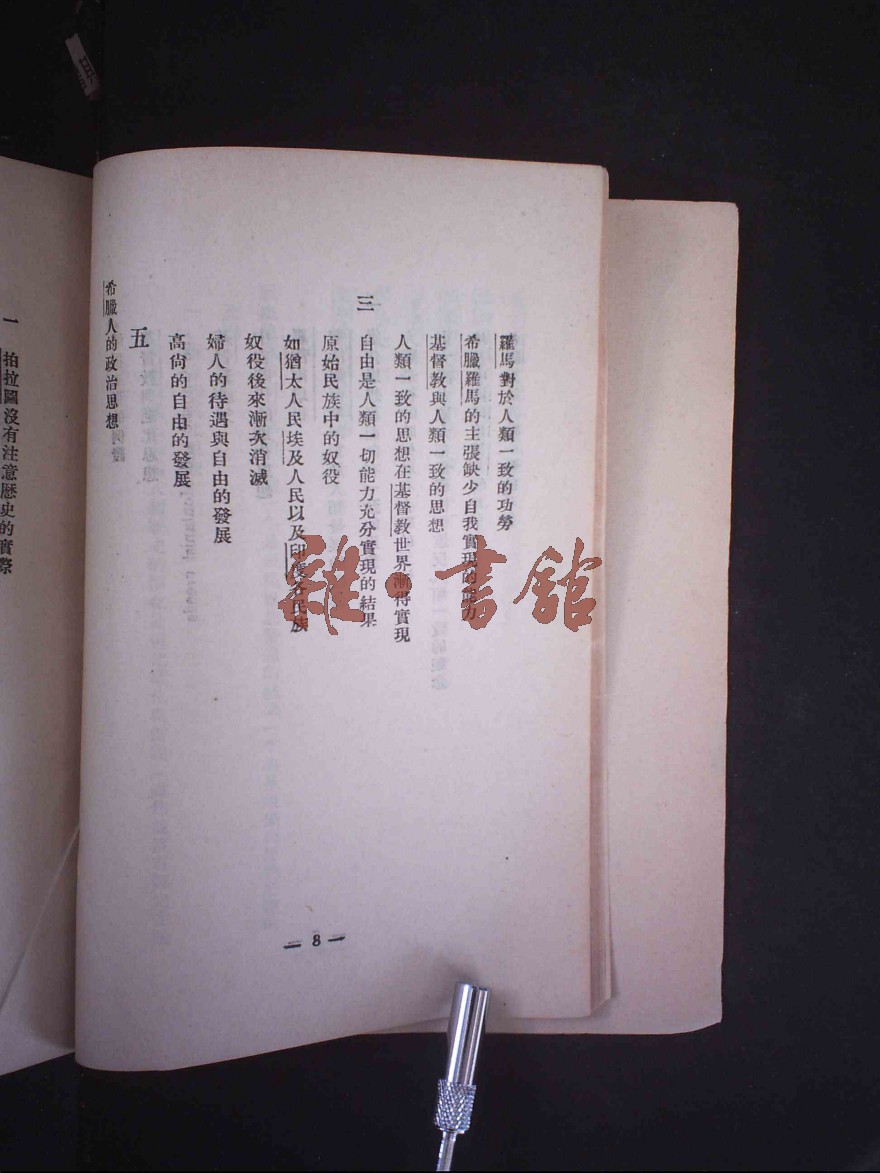 羅馬對於人類一致的功勞
希臘羅馬的主張缺少自我實現的能力
基督教與人類一致的思想
人類一致的思想在基督教世界漸得實現
三
自由是人類一切能力充分實現的結果
原始民族中的奴役
如猶太人民埃及人民以及印度各民族
奴役後來漸次消滅
婦人的待遇與自由的發展
高尚的自由的發展
五
希臘人的政治思想
— 8 —
一 拍拉圖沒有注意歷史的實際
雜·書館